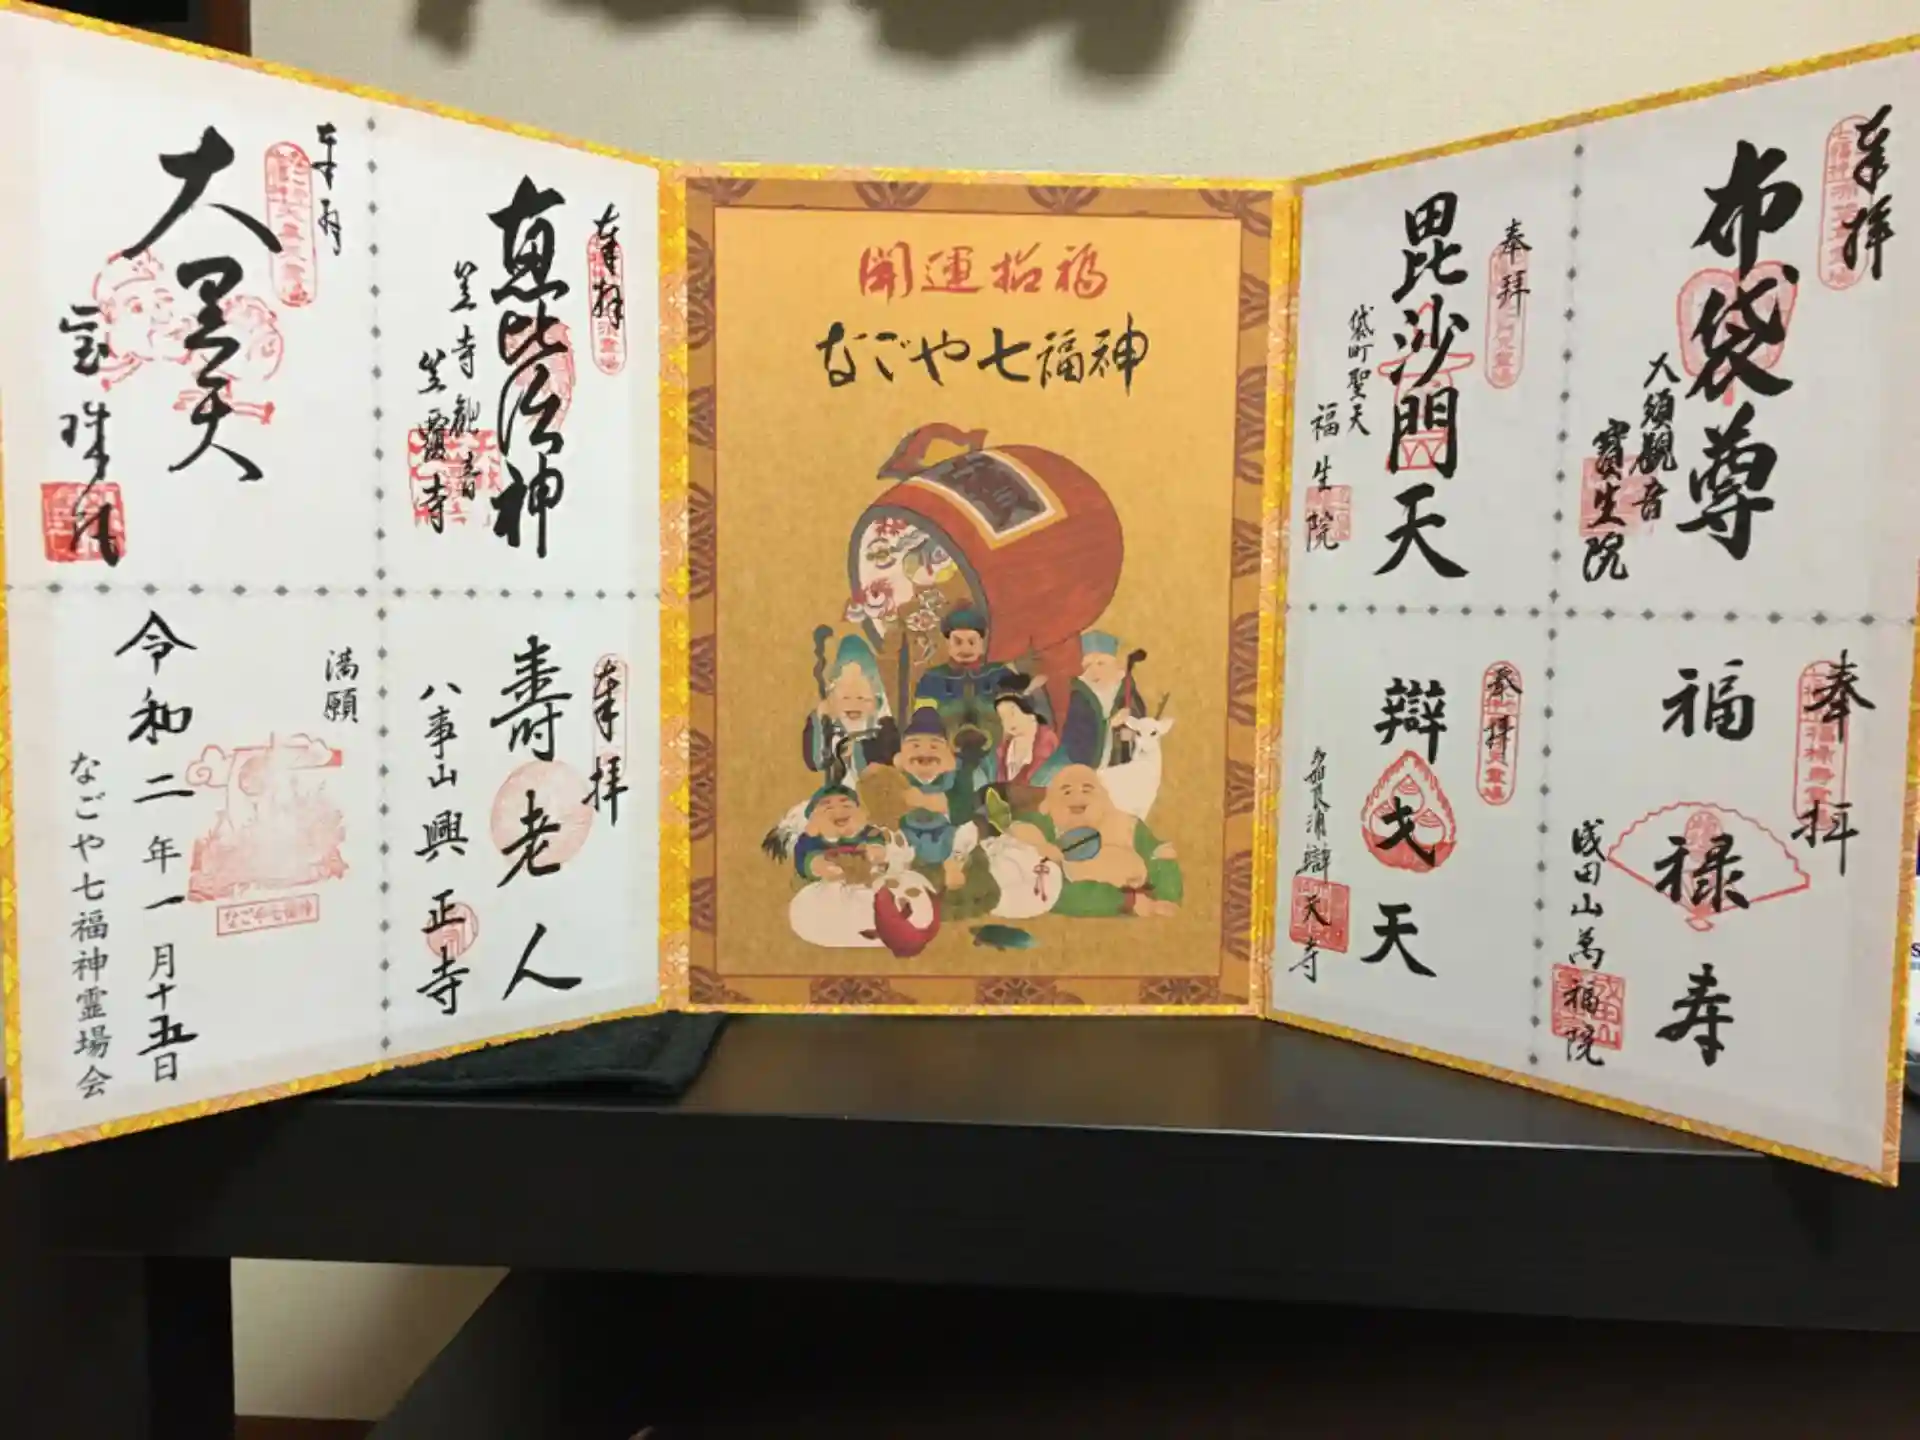 奉拝
布袋尊
大須観音
寳生院
奉拝
毘沙門天
袋町聖天
福生院
奉拝
福禄寿
成田山萬福院
奉拝
辯戈天
辯天寺
開運招福
なごや七福神
奉拝
恵比寿神
笠寺観音
笠覆寺
奉拝
大黒天
宝珠院
奉拝
寿老人
八事山興正寺
満願
なごや七福神
令和二年一月十五日
なごや七福神霊場会